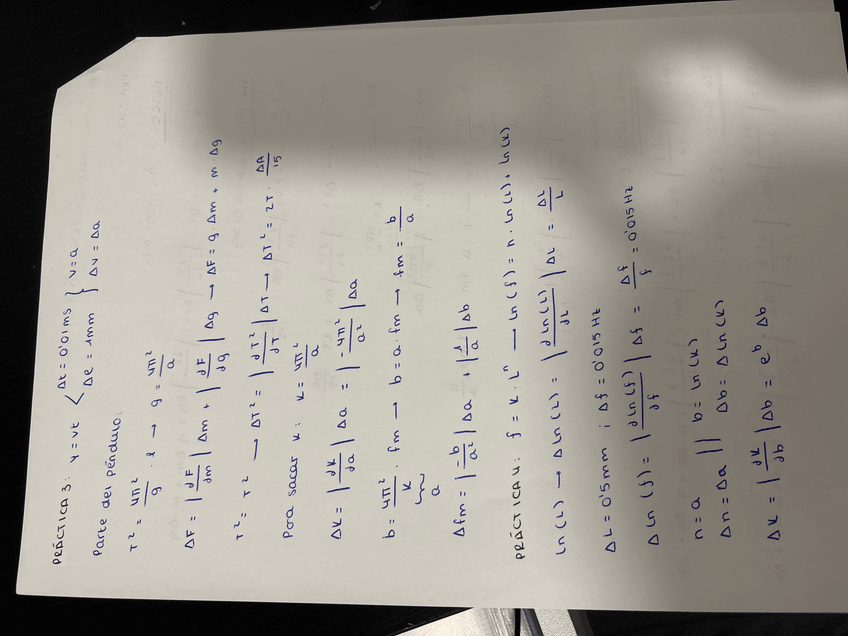 PRÁCTICA 3: y = vt { Δt = 0'01ms } v = a
Δe = 1mm } Δv = Δa
Parte del péndulo:
T² = 4π²/g · l → g = 4π²/a
ΔF = |∂F/∂m| Δm + |∂F/∂g| Δg → ΔF = g · Δm + m Δg
T² = T² → ΔT² = |∂T²/∂T| ΔT → ΔT² = 2T · ΔA/15
Para sacar K: K = 4π²/a
ΔK = |∂K/∂a| Δa = |-4π²/a²| Δa
b = 4π²/K · fm → b = a · fm → fm = b/a
a
Δfm = |-b/a²| Δa + |1/a| Δb
PRÁCTICA 4: f = K · Lⁿ → ln(f) = n · ln(L) + ln(K)
ln(L) → Δ ln(L) = |∂ln(L)/∂L| ΔL = ΔL/L
ΔL = 0'5mm ; Δf = 0'015 Hz
Δ ln(f) = |∂ln(f)/∂f| Δf = Δf/f = 0'015 Hz
n = a || b = ln(K)
Δn = Δa || Δb = Δ ln(K)
ΔK = |∂K/∂b| Δb = e^b · Δb